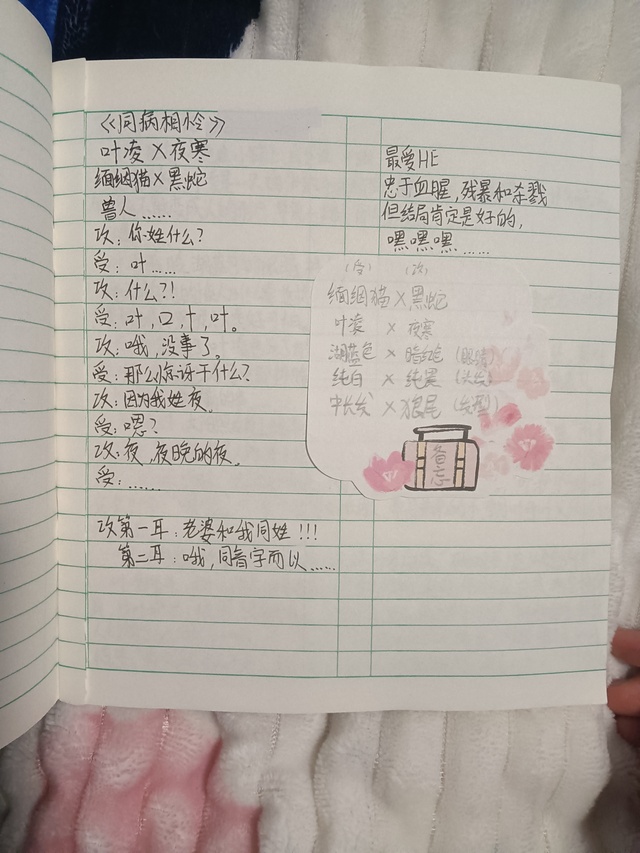 《同病相怜》
叶凌 X 夜寒
缅缅猫 X 黑蛇
兽人……
攻：你姓什么？
受：叶……
攻：什么？！
受：叶，口，十，叶。
攻：哦，没事了。
受：那么惊讶干什么？
攻：因为我姓夜。
受：嗯？
攻：夜，夜晚的夜。
受：……
攻第一耳：老婆和我同姓！！！
第二耳：哦，同音字而以……
最爱HE
忠于血腥，残暴和杀戮
但结局肯定是好的，
嘿嘿嘿……
（受） （攻）
缅缅猫 X 黑蛇
叶凌 X 夜寒
湖蓝色 X 暗红色（眼睛）
纯白 X 纯黑（头发）
中长发 X 狼尾（发型）
备忘